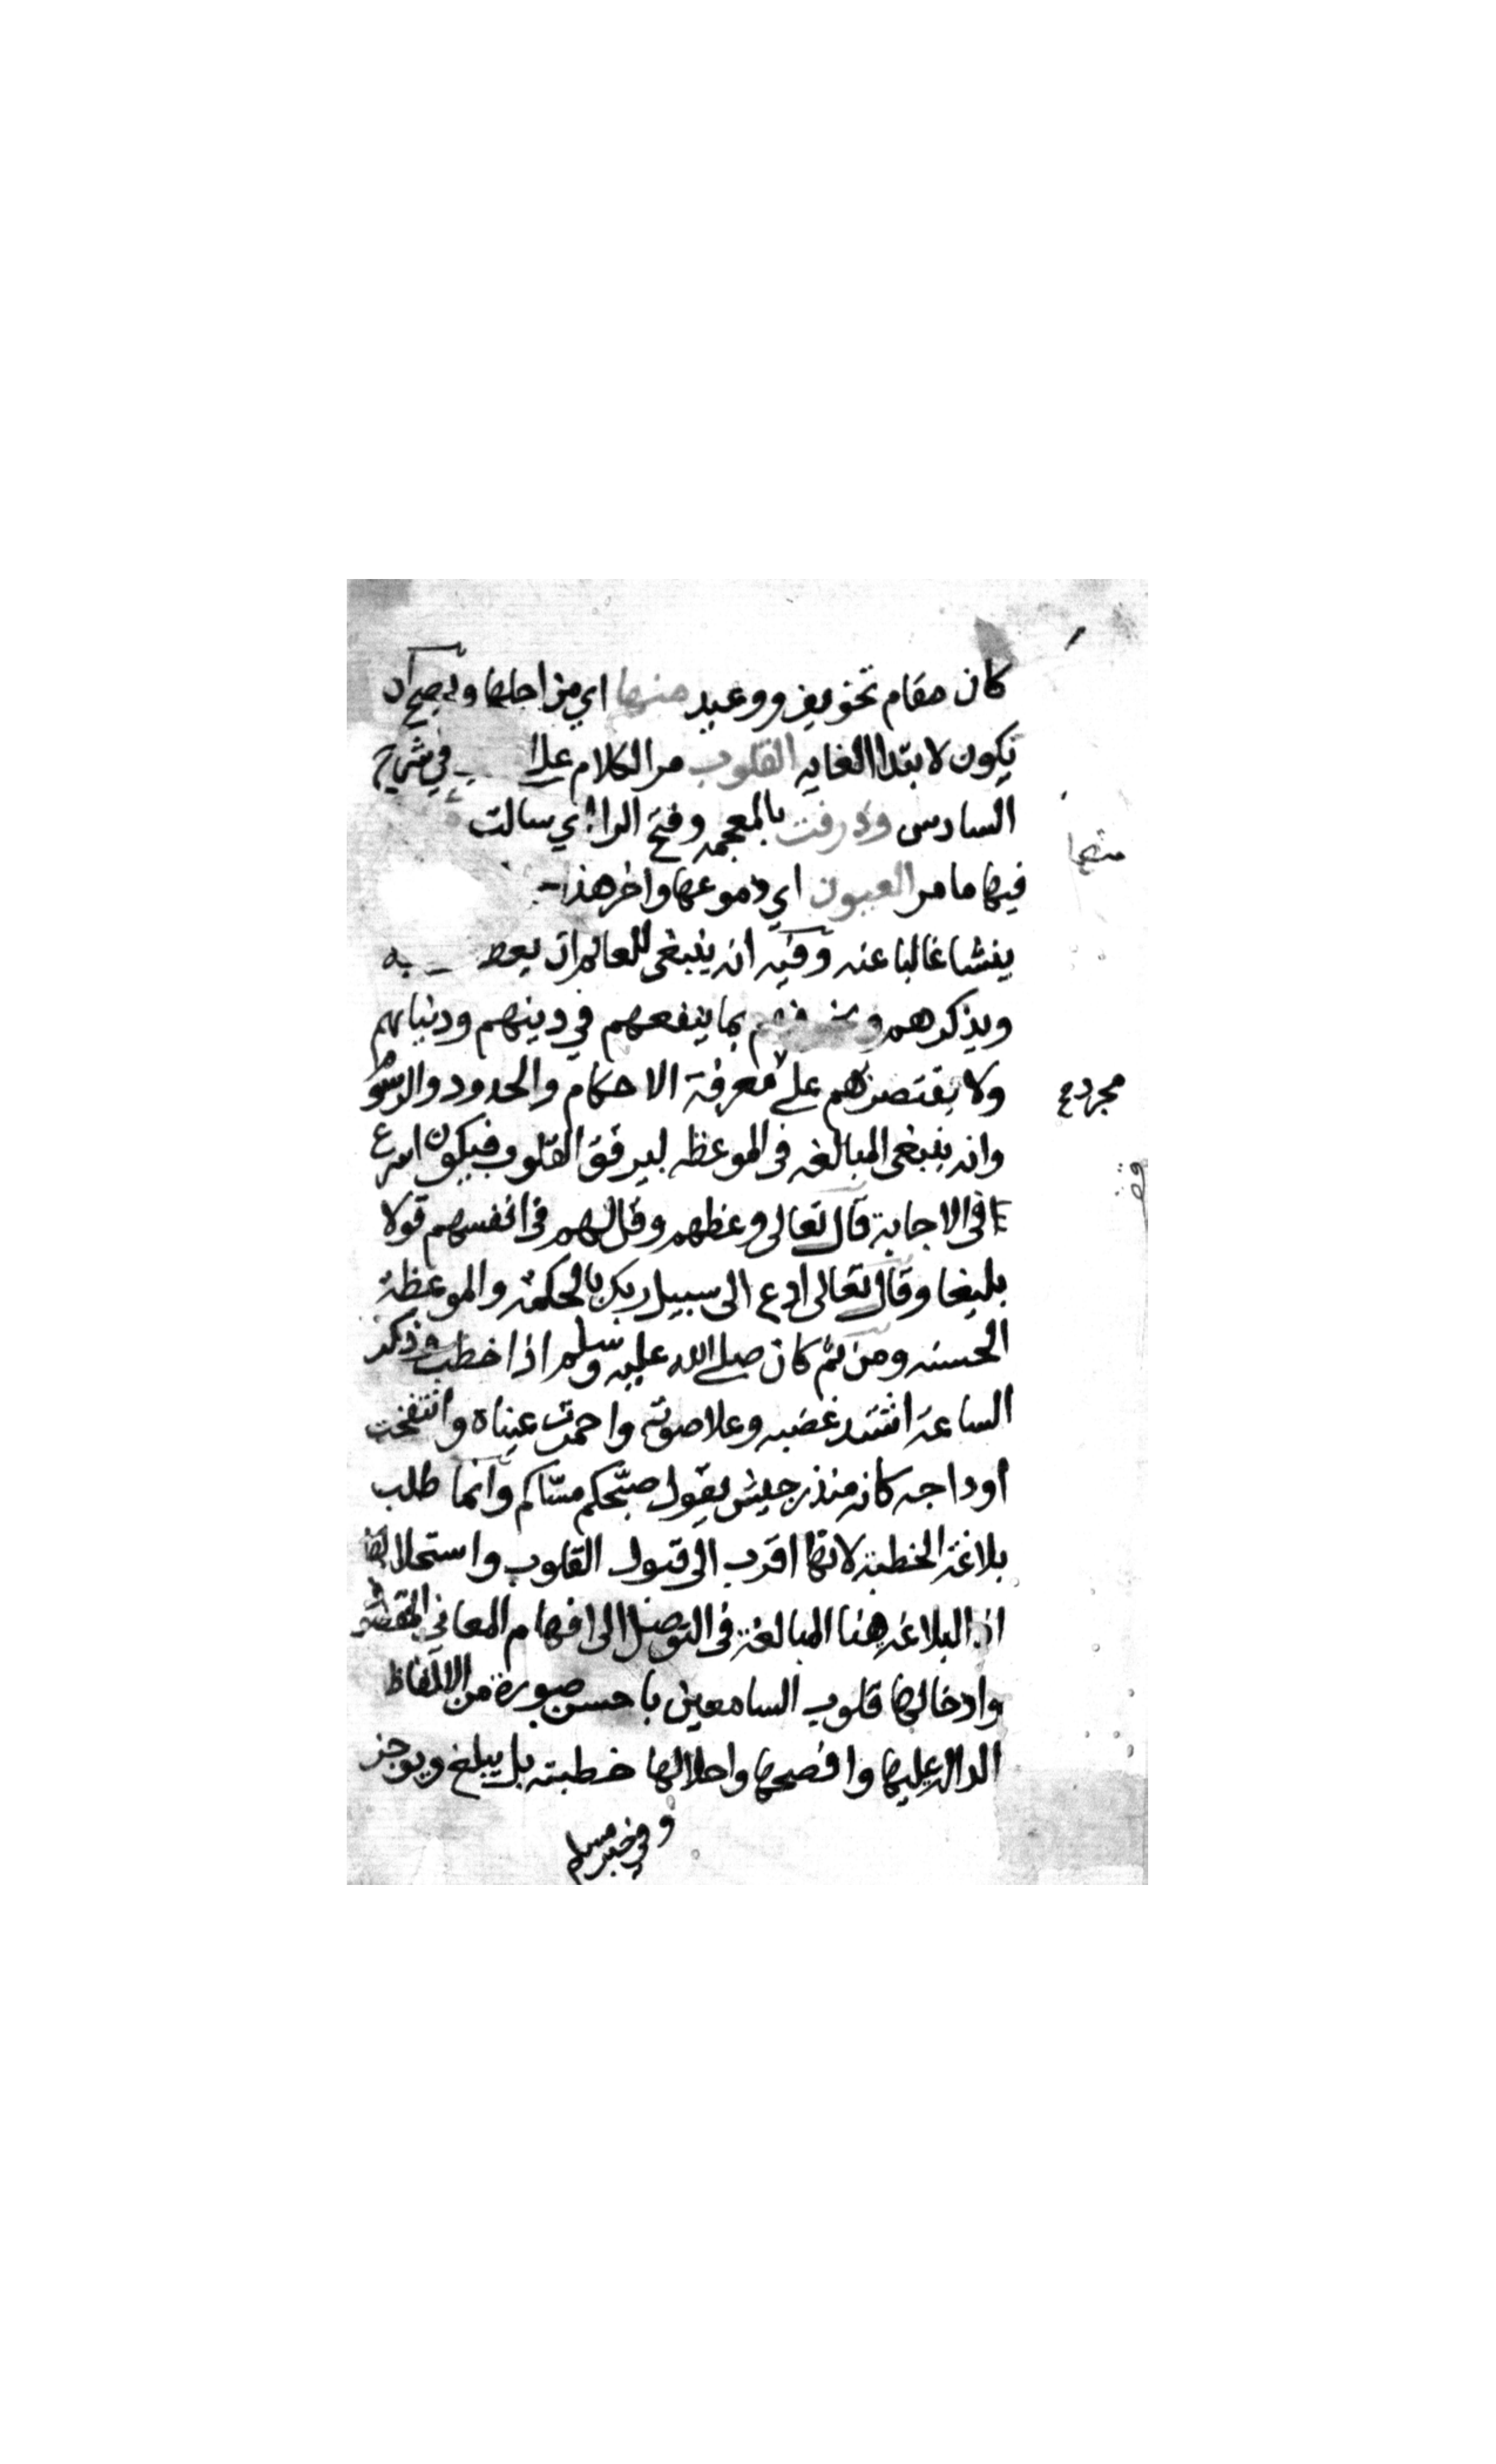 كان مقام تخويف ووعيد منها اي من اجلها ويصح ان
يكون لابتدا الغايه القلوب مر الكلام على في شرح
السادس وذرفت بالمعجمه وفتح الرا اي سالت
منها
فيها ما مر العيون اي دموعها واخر هذا
ينشا غالبا عنه وفيه انه ينبغي للعالم ان يعظ به
ويذكرهم ويخوفهم بما ينفعهم في دينهم ودنياهم
ولا يقتصرهم على معرفة الاحكام والحدود والرسوم
مجرد
وانه ينبغي المبالغه في الموعظه ليرقق القلوب فيكون اسرع
في الاجابة قال تعالى وعظهم وقل لهم في انفسهم قولا
بليغا وقال تعالى ادع الى سبيل ربك بالحكمة والموعظة
الحسنه ومن ثم كان صلى الله عليه وسلم اذا خطب وذكر
الساعة اشتد غضبه وعلا صوته واحمرت عيناه وانتفخت
اوداجه كانه منذر جيش يقول صبّحكم مسّاكم وانما طلب
بلاغة الخطبة لانها اقرب الى قبول القلوب واستحلالها
اذ البلاغه هنا المبالغة في التوصل الى افهام المعاني المقصودة
وادخالها قلوب السامعين باحسن صورة من الالفاظ
الدالة عليها وافصحها واحلالها خطبته بل يبلغ ويوجز
وفي خبر مسلم